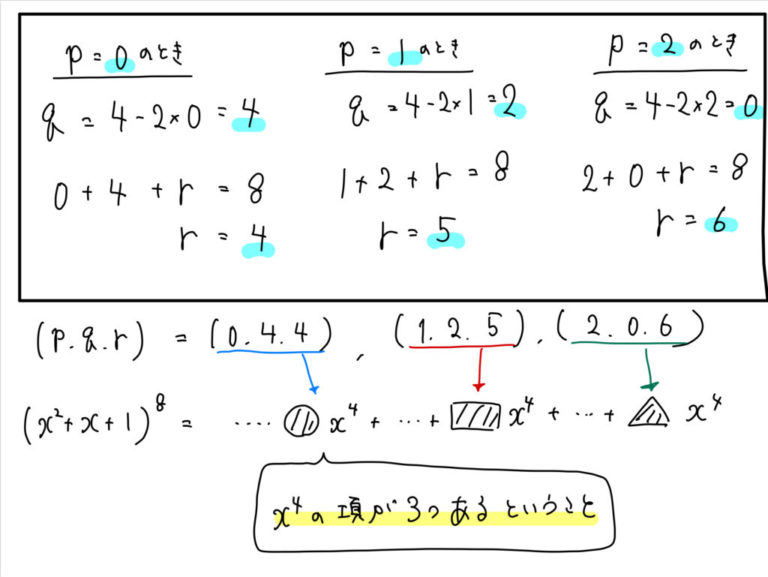 p = 0 のとき
q = 4 - 2×0 = 4
0 + 4 + r = 8
r = 4
p = 1 のとき
q = 4 - 2×1 = 2
1 + 2 + r = 8
r = 5
p = 2 のとき
q = 4 - 2×2 = 0
2 + 0 + r = 8
r = 6
(p. q. r) = (0. 4. 4), (1. 2. 5), (2. 0. 6)
(x²+x+1)⁸ = ‥‥ x⁴ + … + x⁴ + … + x⁴
x⁴の項が3つあるということ